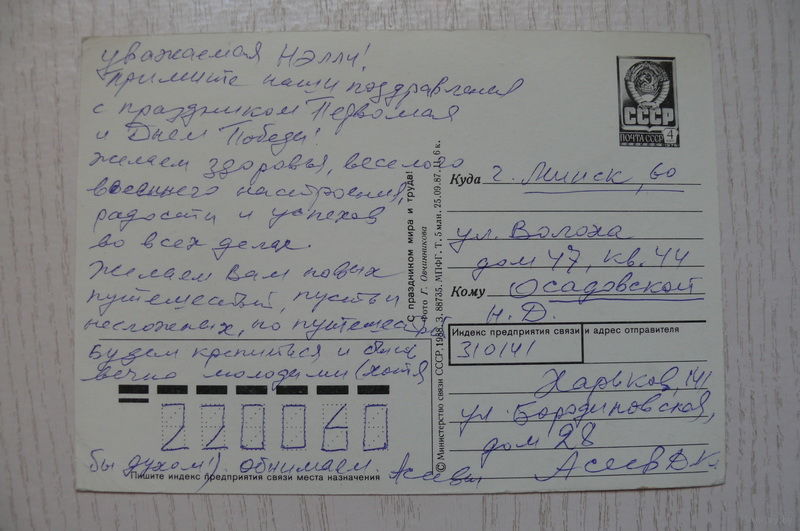 уважаемая Нэлли!
Примите наши поздравления
с праздником Первомая
и Днем Победы!
Желаем здоровья, веселого
весеннего настроения,
радости и успехов
во всех делах.
Желаем Вам новых
путешествий, пусть и
несложных, но путешествий
Будем крепиться и быть
вечно молодыми (хотя
бы духом!). Обнимаем. Асеевы
220060
Пишите индекс предприятия связи места назначения
С праздником мира и труда!
Фото Г. Овчинникова
© Министерство связи СССР, 1988. З. 88735. МПФГ. Т. 5 млн. 25.09.87. Ц. 6 к.
СССР
ПОЧТА СССР
4
Куда г. Минск, 60
ул. Волоха
дом 47, кв. 44
Кому Осадовской
Н. Д.
Индекс предприятия связи и адрес отправителя
310141
Харьков, 141
ул. Бородиновская,
дом 28
Асеев Д К.